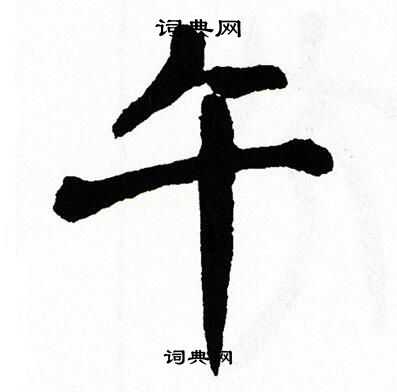 词典网
午
词典网